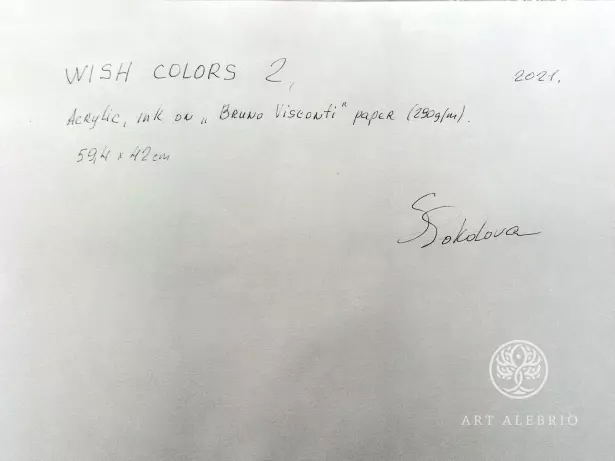 WISH COLORS 2, 2021.
Acrylic, ink on „Bruno Visconti" paper (290g/m).
59,4 x 42 cm
SSokolova
ART ALEBRIO